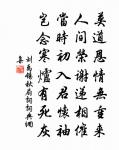 莫道恩情無重來
人間榮謝遞相催
當時初入君懷袖
豈念寒爐有死灰
劉禹錫秋扇詞